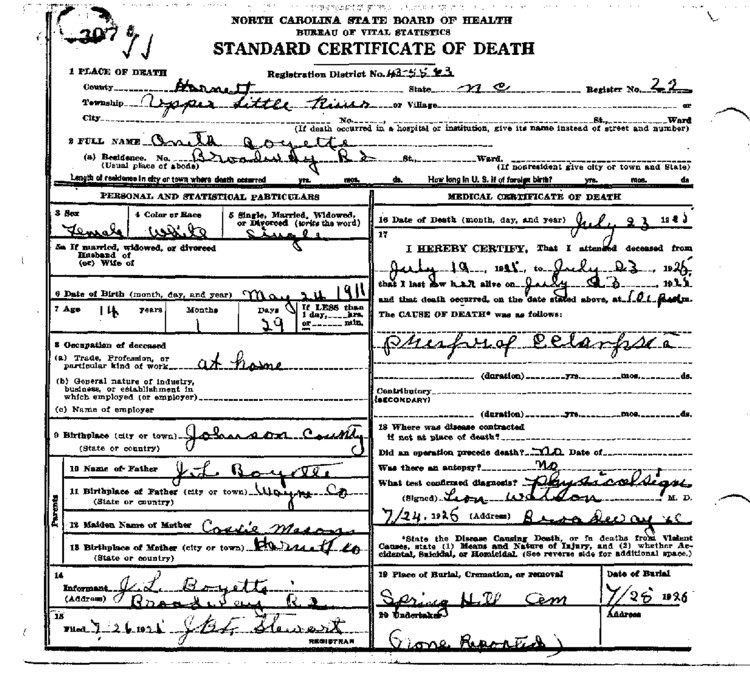 NORTH CAROLINA STATE BOARD OF HEALTH
BUREAU OF VITAL STATISTICS
STANDARD CERTIFICATE OF DEATH
1 PLACE OF DEATH
Registration District No. 43-5563
County Harnett State N C Register No. 22
Township Upper Little River or Village or
City No. St., Ward
(If death occurred in a hospital or institution, give its name instead of street and number)
2 FULL NAME Boyette
(a) Residence. No. Broadway R 2 St., Ward.
(Usual place of abode) (If nonresident give city or town and State)
Length of residence in city or town where death occurred yrs. mos. ds. How long in U. S. if of foreign birth? yrs. mos. ds.
PERSONAL AND STATISTICAL PARTICULARS
3 Sex 4 Color or Race 5 Single, Married, Widowed,
or Divorced (write the word)
Female White Single
5a If married, widowed, or divorced
Husband of
(or) Wife of
6 Date of Birth (month, day, and year) May 24 1911
7 Age 14 years Months 1 Days 29 If LESS than
1 day, hrs.
or min.
8 Occupation of deceased
(a) Trade, Profession, or
particular kind of work at home
(b) General nature of industry,
business, or establishment in
which employed (or employer)
(c) Name of employer
9 Birthplace (city or town) Johnson County
(State or country)
Parents
10 Name of Father J. L. Boyette
11 Birthplace of Father (city or town) Wayne Co
(State or country)
12 Maiden Name of Mother Cassie
13 Birthplace of Mother (city or town) Harnett Co
(State or country)
14
Informant J. L. Boyette
(Address) Broadway R 2
15
Filed 7-26 192 Stewart
REGISTRAR
MEDICAL CERTIFICATE OF DEATH
16 Date of Death (month, day, and year) July 23 192
17
I HEREBY CERTIFY, That I attended deceased from
July 19, 192, to July 23, 192
that I last saw her alive on July 23, 192
and that death occurred, on the date stated above, at m.
The CAUSE OF DEATH* was as follows:
Eclampsia
(duration) yrs. mos. ds.
Contributory
(SECONDARY)
(duration) yrs. mos. ds.
18 Where was disease contracted
if not at place of death?
Did an operation precede death? no Date of
Was there an autopsy? no
What test confirmed diagnosis? physical sign
(Signed) Watson M. D.
7/24, 1926 (Address) Broadway NC
*State the Disease Causing Death, or in deaths from Violent
Causes, state (1) Means and Nature of Injury, and (2) whether Ac-
cidental, Suicidal, or Homicidal. (See reverse side for additional space.)
19 Place of Burial, Cremation, or removal Date of Burial
Spring Hill Cem 7/25 1926
20 Undertaker Address
(None Reported)